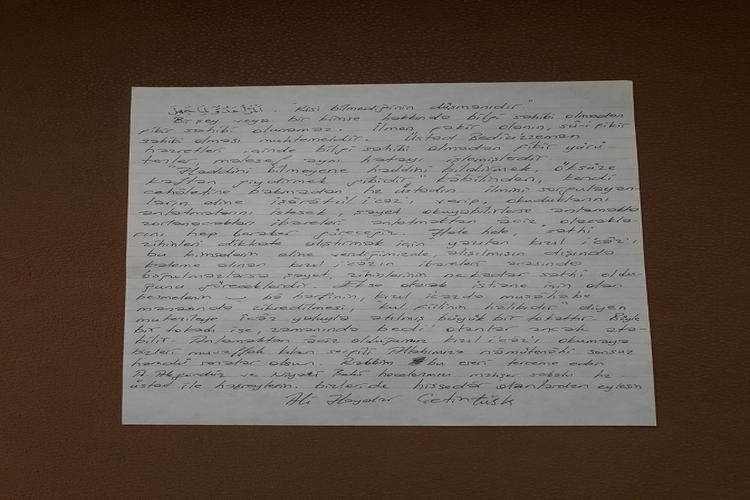 المرء عدو لما جهل . "Kişi bilmediğinin düşmanıdır."
Bir şey veya bir kimse hakkında bilgi sahibi olmadan
fikir sahibi olunamaz. İlmen fakir olanın, sû-i fikir
sahibi olması muhtemeldir. Üstad Bediüzzaman
hazretleri içinde bilgi sahibi olmadan fikir yürü
tenler, malesef aynı hatayı işlemişlerdir.
"Haddini bilmeyene haddini bildirmek, öksüze
kaftan giydirmek gibidir" kabilinden, kendi
cehaletine bakmadan hz üstadın ilmini sorgulayan-
ların eline işârâtül i'câz'ı verip, okuduklarını
anlatmalarını istesek, şayet okuyabilirlerse anlamakta
zorlanacakları ibareleri anlatmaktan âciz olacakla-
rını hep beraber göreceğiz. Hele hele, sathi
zihinleri dikkate alıştırmak için yazılan kızıl i'câz'ı
bu kimselerin eline verdiğimizde alışılmışın dışında
kaleme alınan kızıl i'câzın ibareleri arasında
boğulmazlarsa şayet, zihinlerinin nekadar sathi oldu-
ğunu göreceklerdir. Ekse olarak istiane için olan
besmelenin ب ba harfinin, kızıl icazda musahabe
manasında zikredilmesi, "kul fiilinin halıkıdır" diyen
mutezileye icâz yoluyla atılmış büyük bir tokattır. Böyle
bir tokadı ise, zamanında bedi' olanlar ancak ata-
bilir. Anlamaktan âciz olduğumuz kızıl i'câz'ı okumaya
bizleri muvaffak kılan sevgili Allahımıza nâmütenâhi sonsuz
hamdü senalar olsun. Rabbim, bu eseri tercüme eden
A. Akgündüz ve Niyazi Beki hocalarımı mahşer sabahı hz
üstad ile haşreylesin. bizleride hissedâr olanlardan eylesin
Ali Haydar Çetintürk